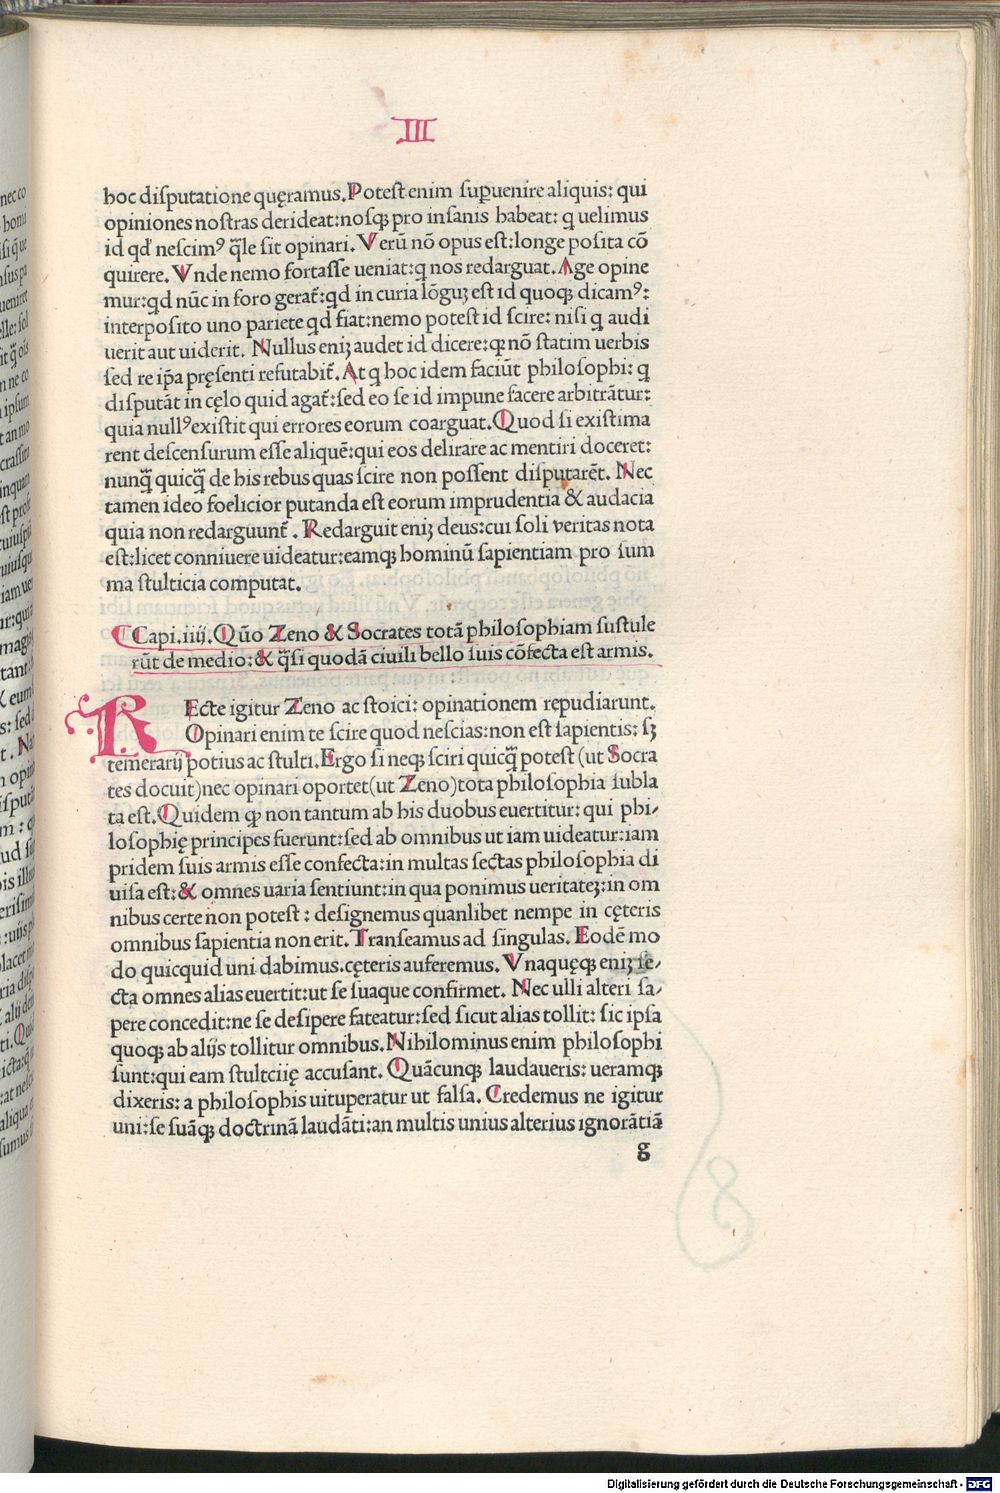 III
hoc disputatione quęramus. Potest enim supuenire aliquis: qui
opiniones nostras derideat: nosqꝫ pro insanis habeat: q uelimus
id qđ nescimꝰ q̃le sit opinari. Verũ nõ opus est: longe posita cõ
quirere. Vnde nemo fortasse ueniat: q nos redarguat. Age opine
mur: qd nũc in foro gerat᷑: qd in curia lõguꝫ est id quoqꝫ dicamꝰ:
interposito uno pariete qd fiat: nemo potest id scire: nisi q audi
uerit aut uiderit. Nullus eniꝫ audet id dicere: qꝫ nõ statim uerbis
sed re ip̃a pręsenti refutabit᷑. At q hoc idem faciũt philosophi: q
disputãt in cęlo quid agat᷑: sed eo se id impune facere arbitrãtur:
quia nullꝰ existit qui errores eorum coarguat. Quod si existima
rent descensurum esse aliquẽ: qui eos delirare ac mentiri doceret:
nunq̃ quicq̃ de his rebus quas scire non possent disputarẽt. Nec
tamen ideo foelicior putanda est eorum imprudentia & audacia
quia non redarguunt᷑. Redarguit eniꝫ deus: cui soli veritas nota
est: licet conniuere uideatur: eamqꝫ hominũ sapientiam pro sum
ma stulticia computat.
Capi. iiij. Quõ Zeno & Socrates totã philosophiam sustule
rũt de medio: & q̃si quodã ciuili bello suis cõfecta est armis.
REcte igitur Zeno ac stoici: opinationem repudiarunt.
Opinari enim te scire quod nescias: non est sapientis: sꝫ
temerarij potius ac stulti. Ergo si neqꝫ sciri quicq̃ potest (ut Socra
tes docuit) nec opinari oportet (ut Zeno) tota philosophia subla
ta est. Quidem qꝫ non tantum ab his duobus euertitur: qui phi-
losophię principes fuerunt: sed ab omnibus ut iam uideatur: iam
pridem suis armis esse confecta: in multas sectas philosophia di
uisa est: & omnes uaria sentiunt: in qua ponimus ueritateꝫ: in om
nibus certe non potest: designemus quanlibet nempe in cęteris
omnibus sapientia non erit. Transeamus ad singulas. Eodẽ mo
do quicquid uni dabimus. cęteris auferemus. Vnaquęqꝫ eniꝫ se-
cta omnes alias euertit: ut se suaque confirmet. Nec ulli alteri sa-
pere concedit: ne se desipere fateatur: sed sicut alias tollit: sic ipsa
quoqꝫ ab alijs tollitur omnibus. Nihilominus enim philosophi
sunt: qui eam stultciię accusant. Quãcunqꝫ laudaueris: ueramqꝫ
dixeris: a philosophis uituperatur ut falsa. Credemus ne igitur
uni: se suãqꝫ doctrinã laudãti: an multis unius alterius ignorãtiã
g
Digitalisierung gefördert durch die Deutsche Forschungsgemeinschaft - DFG